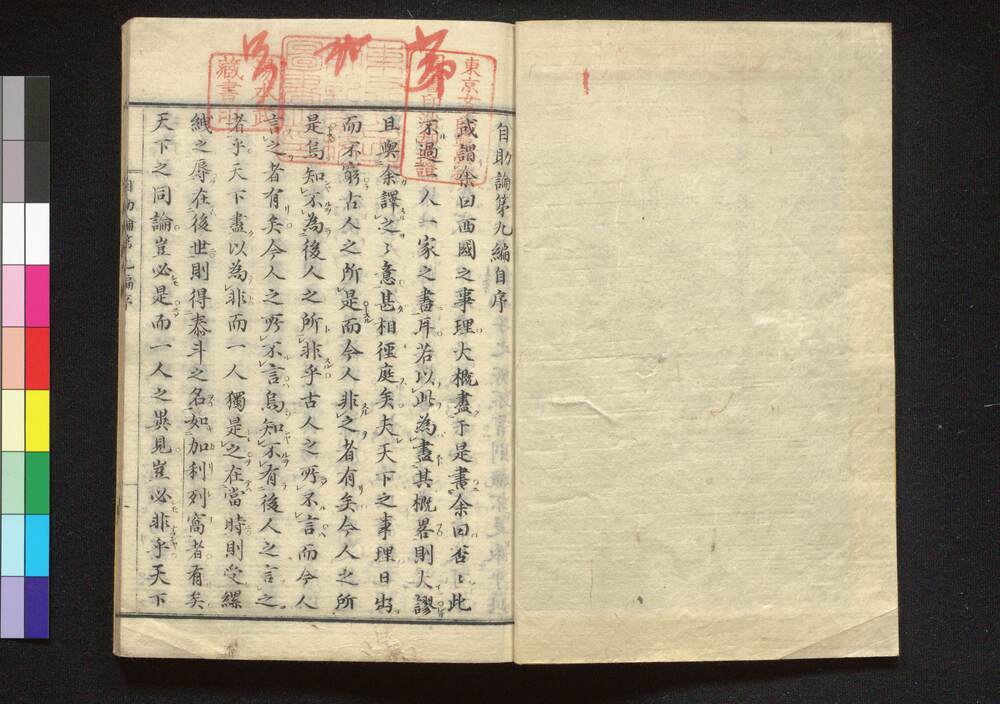 自助論第九編自序
或謂余曰西國之事理大概盡于是書余曰否〻此
不過一人一家之書耳若以此爲盡其概畧則大謬
且與余譯之〻意甚相徑庭矣夫天下之事理日出
而不窮古人之所是而今人非之者有矣今人之所
是烏知不爲後人之所非乎古人之所不言而今人
言之者有矣今人之所不言烏知不有後人之言之
者乎天下盡以為非而一人獨是之在當時則受縲
紲之辱在後世則得泰斗之名如加利列窩者有矣
天下之同論豈必是而一人之異見豈必非乎天下
自助論第九編序
一
東京
藏書印